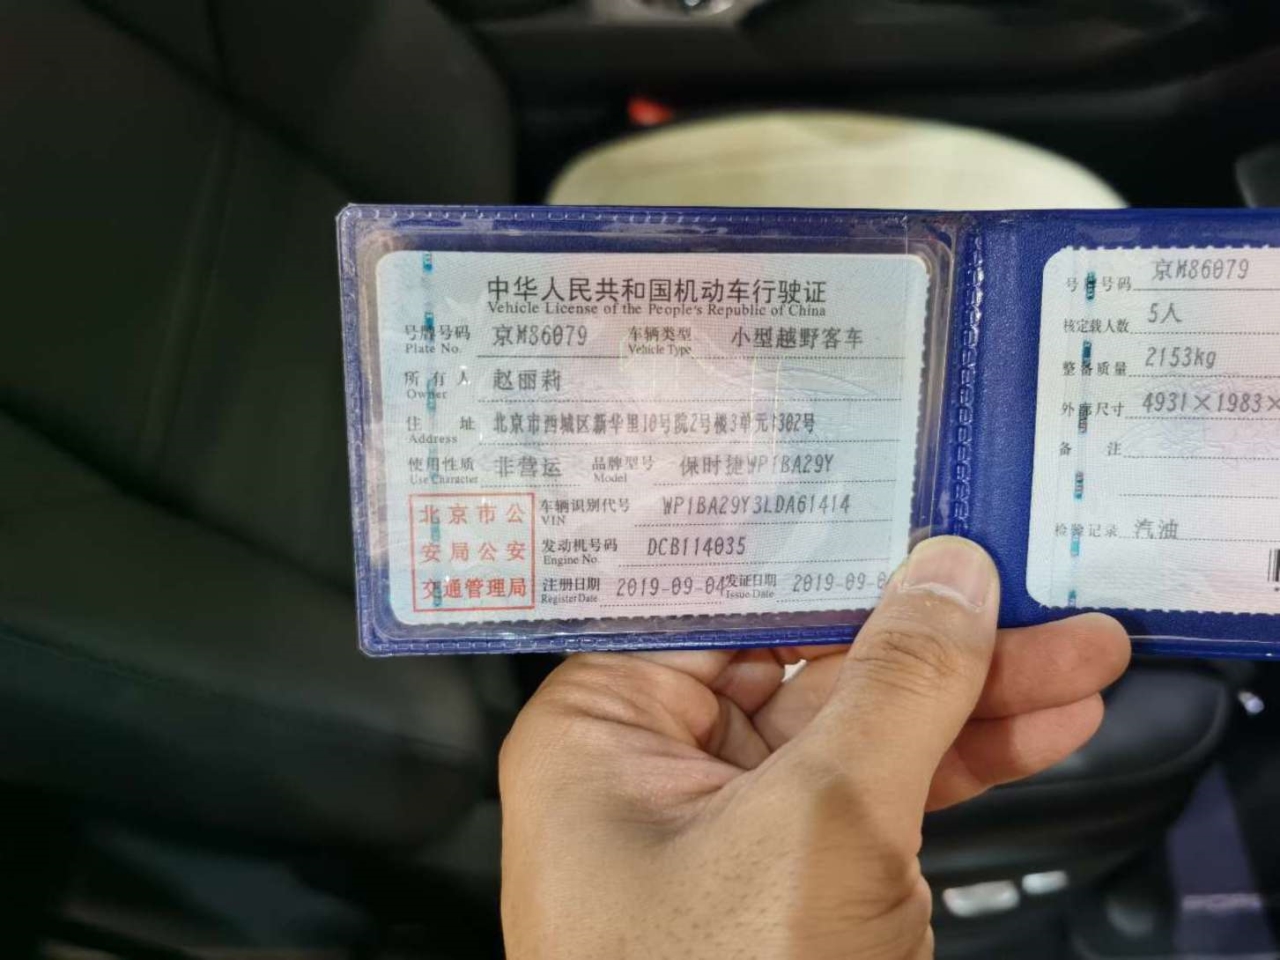 中华人民共和国机动车行驶证
Vehicle License of the People's Republic of China
号牌号码 京M86079 车辆类型 小型越野客车
Plate No. Vehicle Type
所有人 赵丽莉
Owner
住址 北京市西城区新华里10号院2号楼3单元1302号
Address
使用性质 非营运 品牌型号 保时捷WP1BA29Y
Use Character Model
北京市公
安局公安
交通管理局
车辆识别代号 WP1BA29Y3LDA61414
VIN
发动机号码 DCB114035
Engine No.
注册日期 2019-09-04 发证日期 2019-09-0
Register Date Issue Date
号牌号码 京M86079
核定载人数 5人
整备质量 2153kg
外廓尺寸 4931×1983×
备注
检验记录 汽油